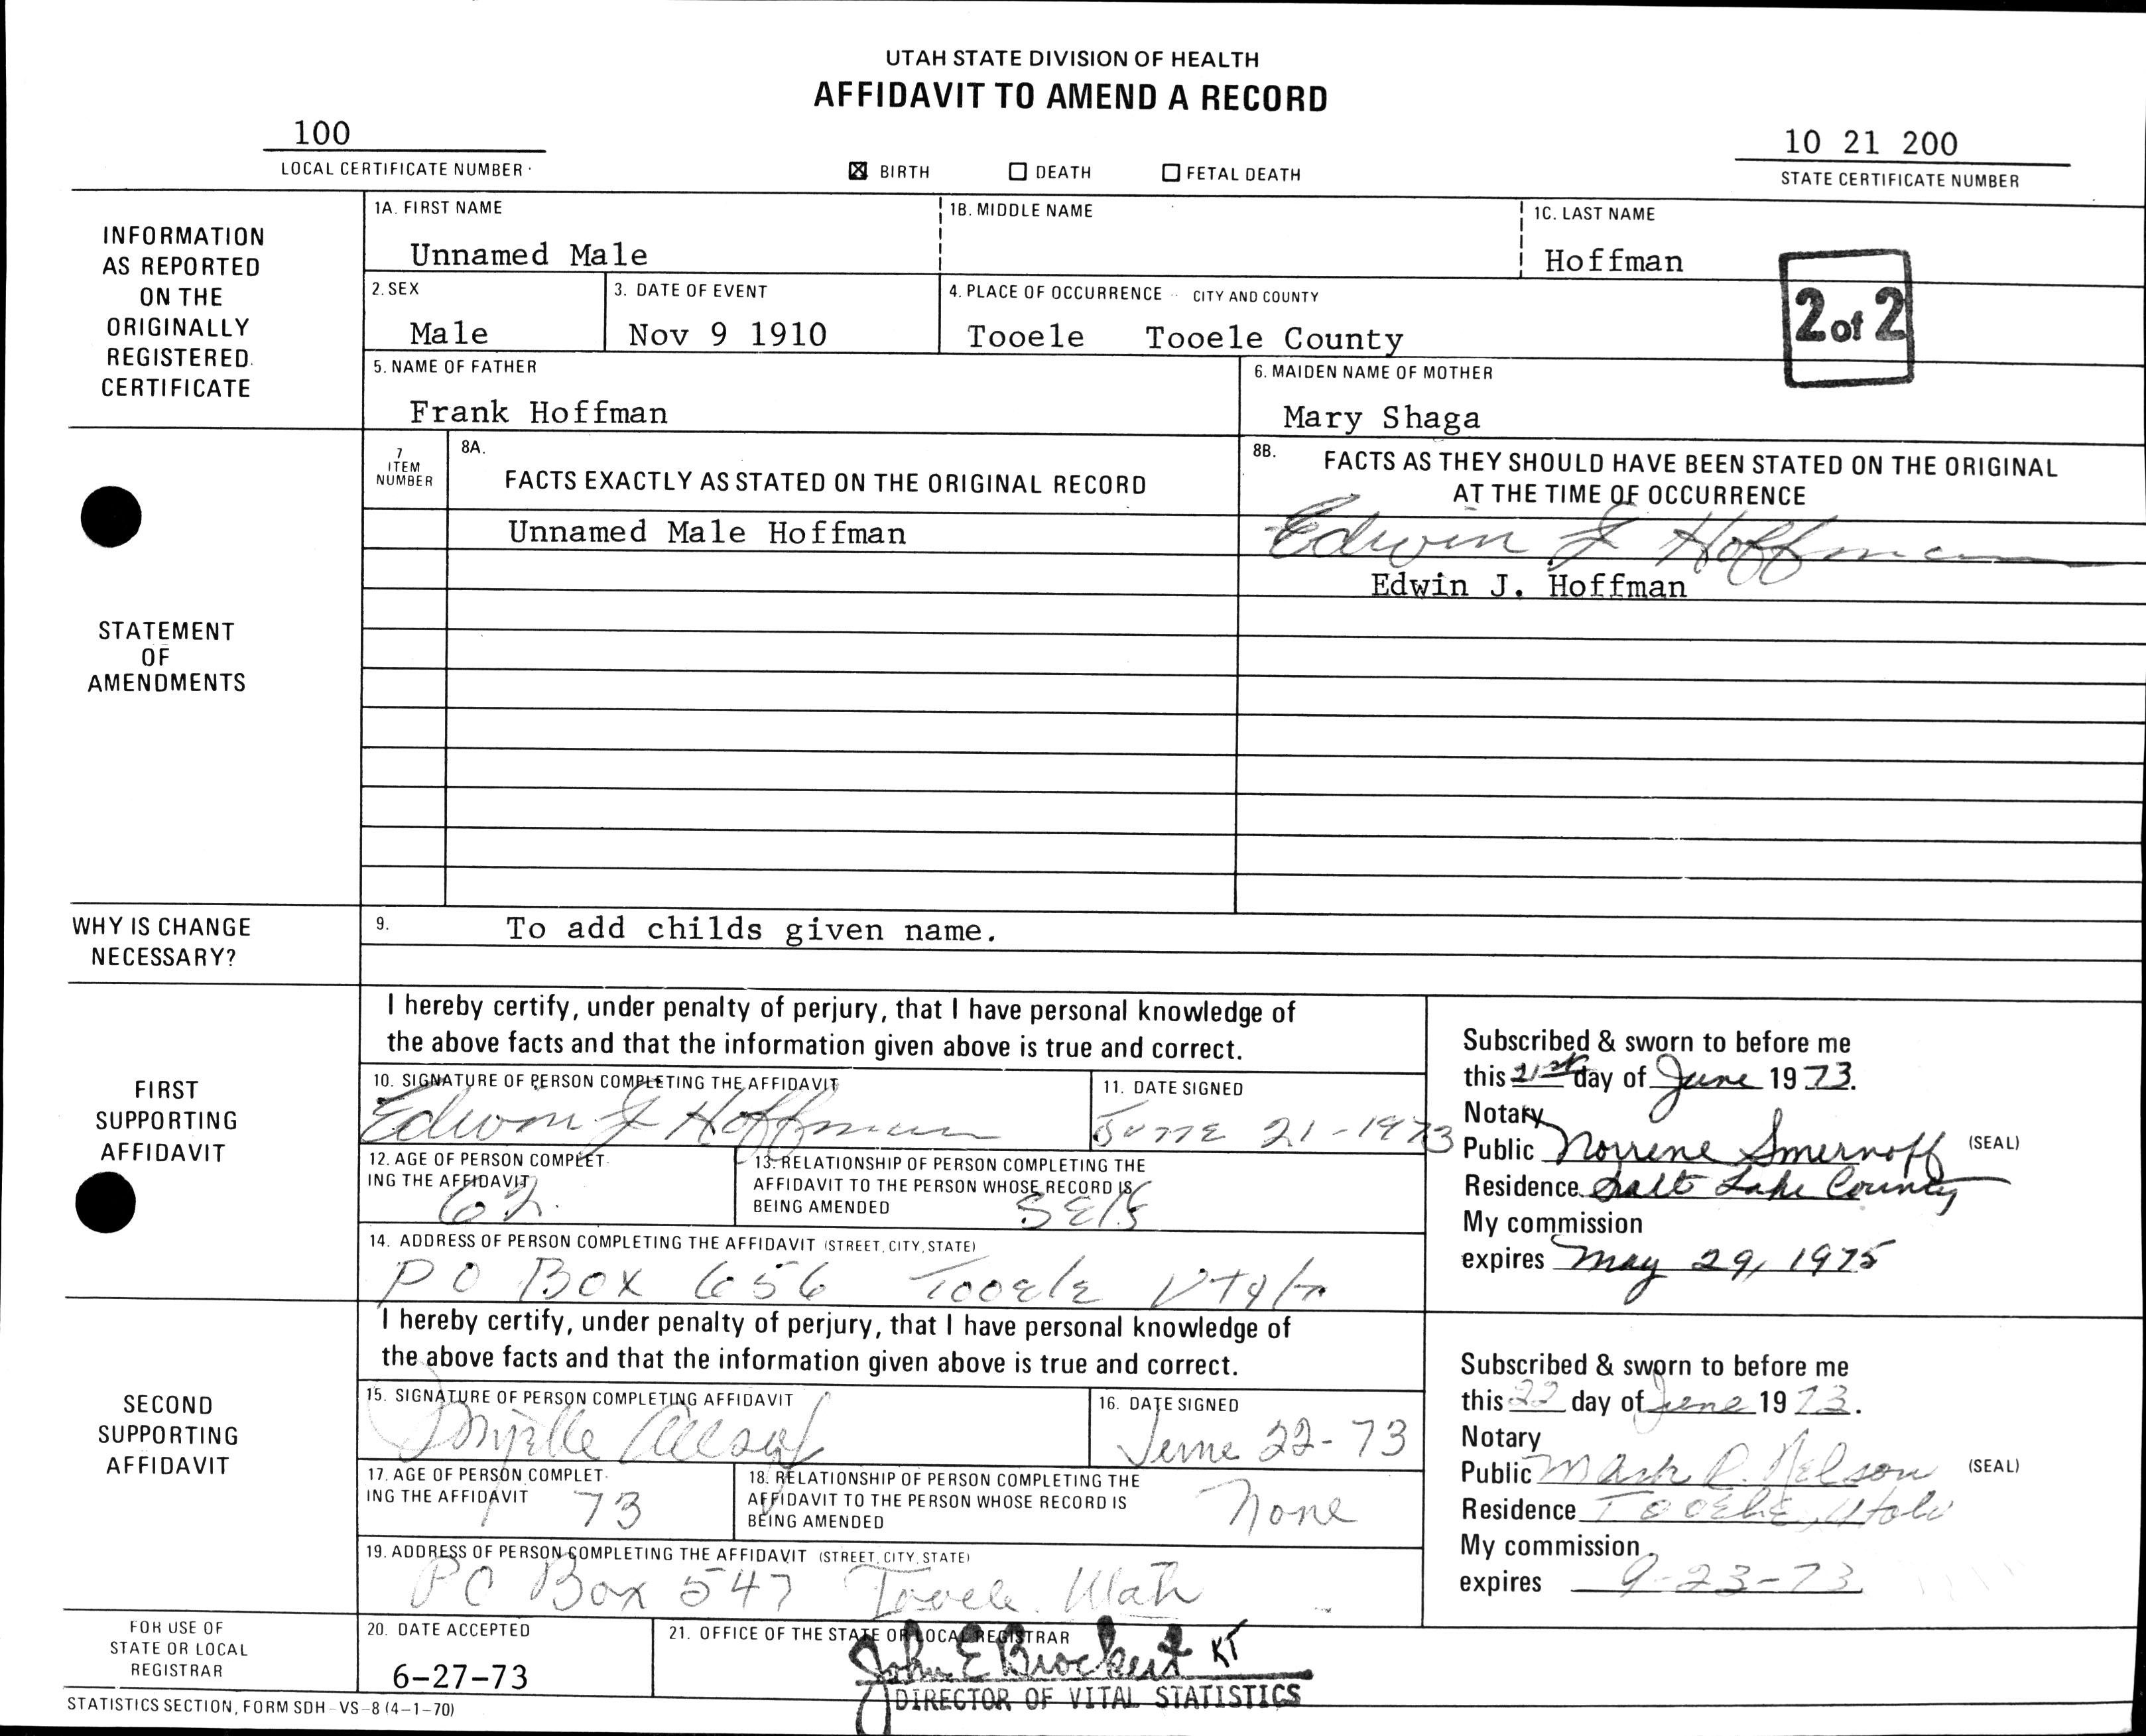 UTAH STATE DIVISION OF HEALTH
AFFIDAVIT TO AMEND A RECORD
100
LOCAL CERTIFICATE NUMBER
☒ BIRTH ☐ DEATH ☐ FETAL DEATH
10 21 200
STATE CERTIFICATE NUMBER
INFORMATION
AS REPORTED
ON THE
ORIGINALLY
REGISTERED
CERTIFICATE
1A. FIRST NAME
Unnamed Male
1B. MIDDLE NAME
1C. LAST NAME
Hoffman
2 of 2
2. SEX
Male
3. DATE OF EVENT
Nov 9 1910
4. PLACE OF OCCURRENCE -- CITY AND COUNTY
Tooele Tooele County
5. NAME OF FATHER
Frank Hoffman
6. MAIDEN NAME OF MOTHER
Mary Shaga
STATEMENT
OF
AMENDMENTS
7
ITEM
NUMBER
8A.
FACTS EXACTLY AS STATED ON THE ORIGINAL RECORD
Unnamed Male Hoffman
8B. FACTS AS THEY SHOULD HAVE BEEN STATED ON THE ORIGINAL
AT THE TIME OF OCCURRENCE
Edwin J Hoffman
Edwin J. Hoffman
WHY IS CHANGE
NECESSARY?
9. To add childs given name.
FIRST
SUPPORTING
AFFIDAVIT
I hereby certify, under penalty of perjury, that I have personal knowledge of
the above facts and that the information given above is true and correct.
10. SIGNATURE OF PERSON COMPLETING THE AFFIDAVIT
Edwin J Hoffman
11. DATE SIGNED
June 21-1973
12. AGE OF PERSON COMPLET-
ING THE AFFIDAVIT
62
13. RELATIONSHIP OF PERSON COMPLETING THE
AFFIDAVIT TO THE PERSON WHOSE RECORD IS
BEING AMENDED
SElf
14. ADDRESS OF PERSON COMPLETING THE AFFIDAVIT (STREET, CITY, STATE)
PO Box 656 Tooele Utah
Subscribed & sworn to before me
this 21st day of June 1973.
Notary
Public Norrene Smernoff (SEAL)
Residence Salt Lake County
My commission
expires May 29, 1975
SECOND
SUPPORTING
AFFIDAVIT
I hereby certify, under penalty of perjury, that I have personal knowledge of
the above facts and that the information given above is true and correct.
15. SIGNATURE OF PERSON COMPLETING AFFIDAVIT
16. DATE SIGNED
June 22-73
17. AGE OF PERSON COMPLET-
ING THE AFFIDAVIT
73
18. RELATIONSHIP OF PERSON COMPLETING THE
AFFIDAVIT TO THE PERSON WHOSE RECORD IS
BEING AMENDED
None
19. ADDRESS OF PERSON COMPLETING THE AFFIDAVIT (STREET, CITY, STATE)
PO Box 547 Tooele Utah
Subscribed & sworn to before me
this 22 day of June 1973.
Notary
Public Mark P. Nelson (SEAL)
Residence Tooele, Utah
My commission
expires 9-23-73
FOR USE OF
STATE OR LOCAL
REGISTRAR
20. DATE ACCEPTED
6-27-73
21. OFFICE OF THE STATE OR LOCAL REGISTRAR
John E Brockert KT
DIRECTOR OF VITAL STATISTICS
STATISTICS SECTION, FORM SDH-VS-8 (4-1-70)